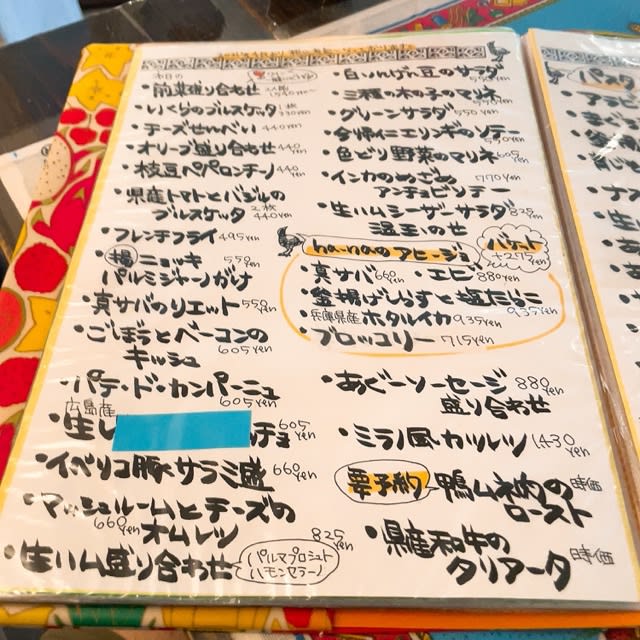 本日の
前菜盛り合わせ
・いくらのブルスケッタ 1枚 330yen
・チーズせんべい 440yen
・オリーブ盛り合わせ 440yen
・枝豆ペペロンチーノ 440yen
・県産トマトとバジルの
ブルスケッタ 2枚 440yen
・フレンチフライ 495yen
・揚ニョッキ 550yen
パルミジャーノがけ
・真サバのリエット 550yen
・ごぼうとベーコンの
キッシュ 605yen
・パテ・ド・カンパーニュ 605yen
広島産
・生し
チョ 605yen
・イベリコ豚サラミ盛 660yen
・マッシュルームとチーズの
660yen オムレツ
・生ハム盛り合わせ 825yen
パルマプロシュート
ハモンセラーノ
・白いんげん豆のサラダ
・三種の木の子のマリネ 550yen
・グリーンサラダ 550yen
・合鴨とエリンギのソテー
・色どり野菜のマリネ 605yen
・インカのめざめ 770yen
アンチョビソテー
・生ハムシーザーサラダ 825yen
温玉のせ
ha-naのアヒージョ
バケット
+275yen
・真サバ 660yen ・エビ 880yen
・釜揚げしらすと塩たらこ 935yen
・兵庫県産ホタルイカ 935yen
・ブロッコリー 715yen
・あぐーソーセージ 880yen
盛り合わせ
・ミラノ風カツレツ 1430yen
要予約 鴨ムネ肉の 時価
ロースト
・県産和牛の 時価
タリアータ
パスタ